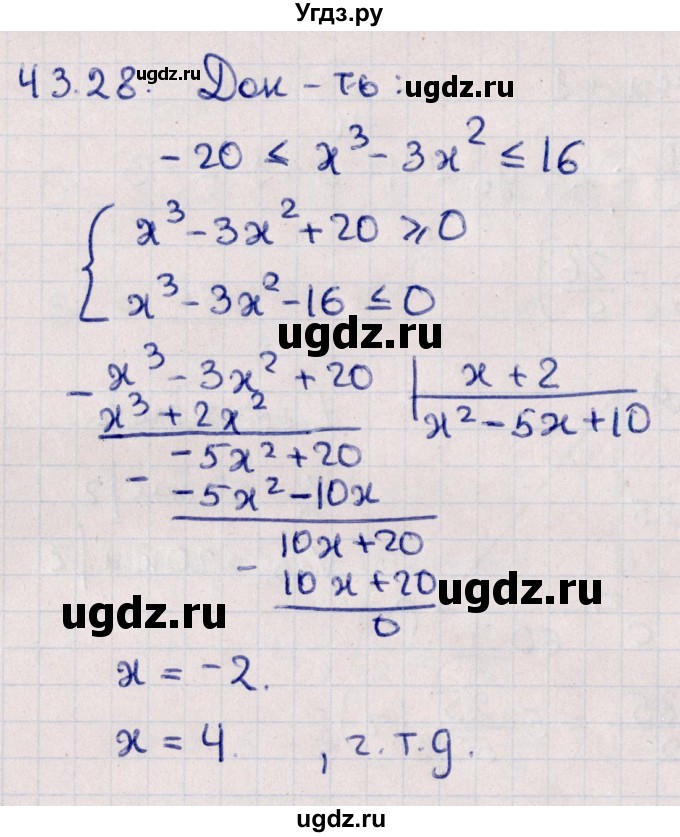 Угдз.ру
43.28. Док-ть:
ugdz.ru
ugdz.ru
-20 ≤ x³ - 3x² ≤ 16
{ x³ - 3x² + 20 ⩾ 0
x³ - 3x² - 16 ≤ 0
ugdz.ru
- x³ - 3x² + 20 | x + 2
x³ + 2x² | x² - 5x + 10
- -5x² + 20
-5x² - 10x
- 10x + 20
10x + 20
ugdz.ru
ugdz.ru
0
x = -2.
x = 4. , ч.т.д.
ugdz.ru